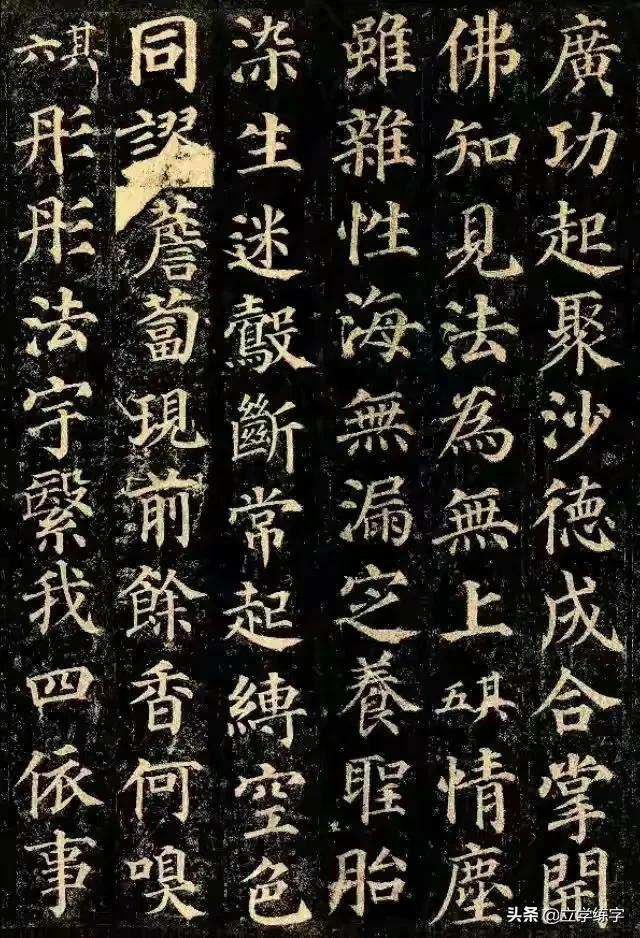 廣功起聚沙德成合掌開
佛知見法為無上其五情塵
雖雜性海無漏㝎養聖胎
染生迷鷇斷常起縛空色
同謬薝蔔現前餘香何嗅
其六彤彤法宇繄我四依事
头条 @立学练字